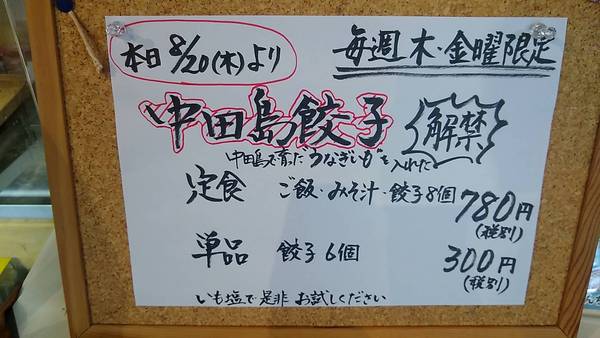 本日8/20(木)より
毎週木・金曜限定
中田島餃子 解禁
中田島で育った"うなぎいも"を入れた
定食 ご飯・みそ汁・餃子8個 780円
(税別)
単品 餃子6個 300円
(税別)
いも塩で是非お試しください